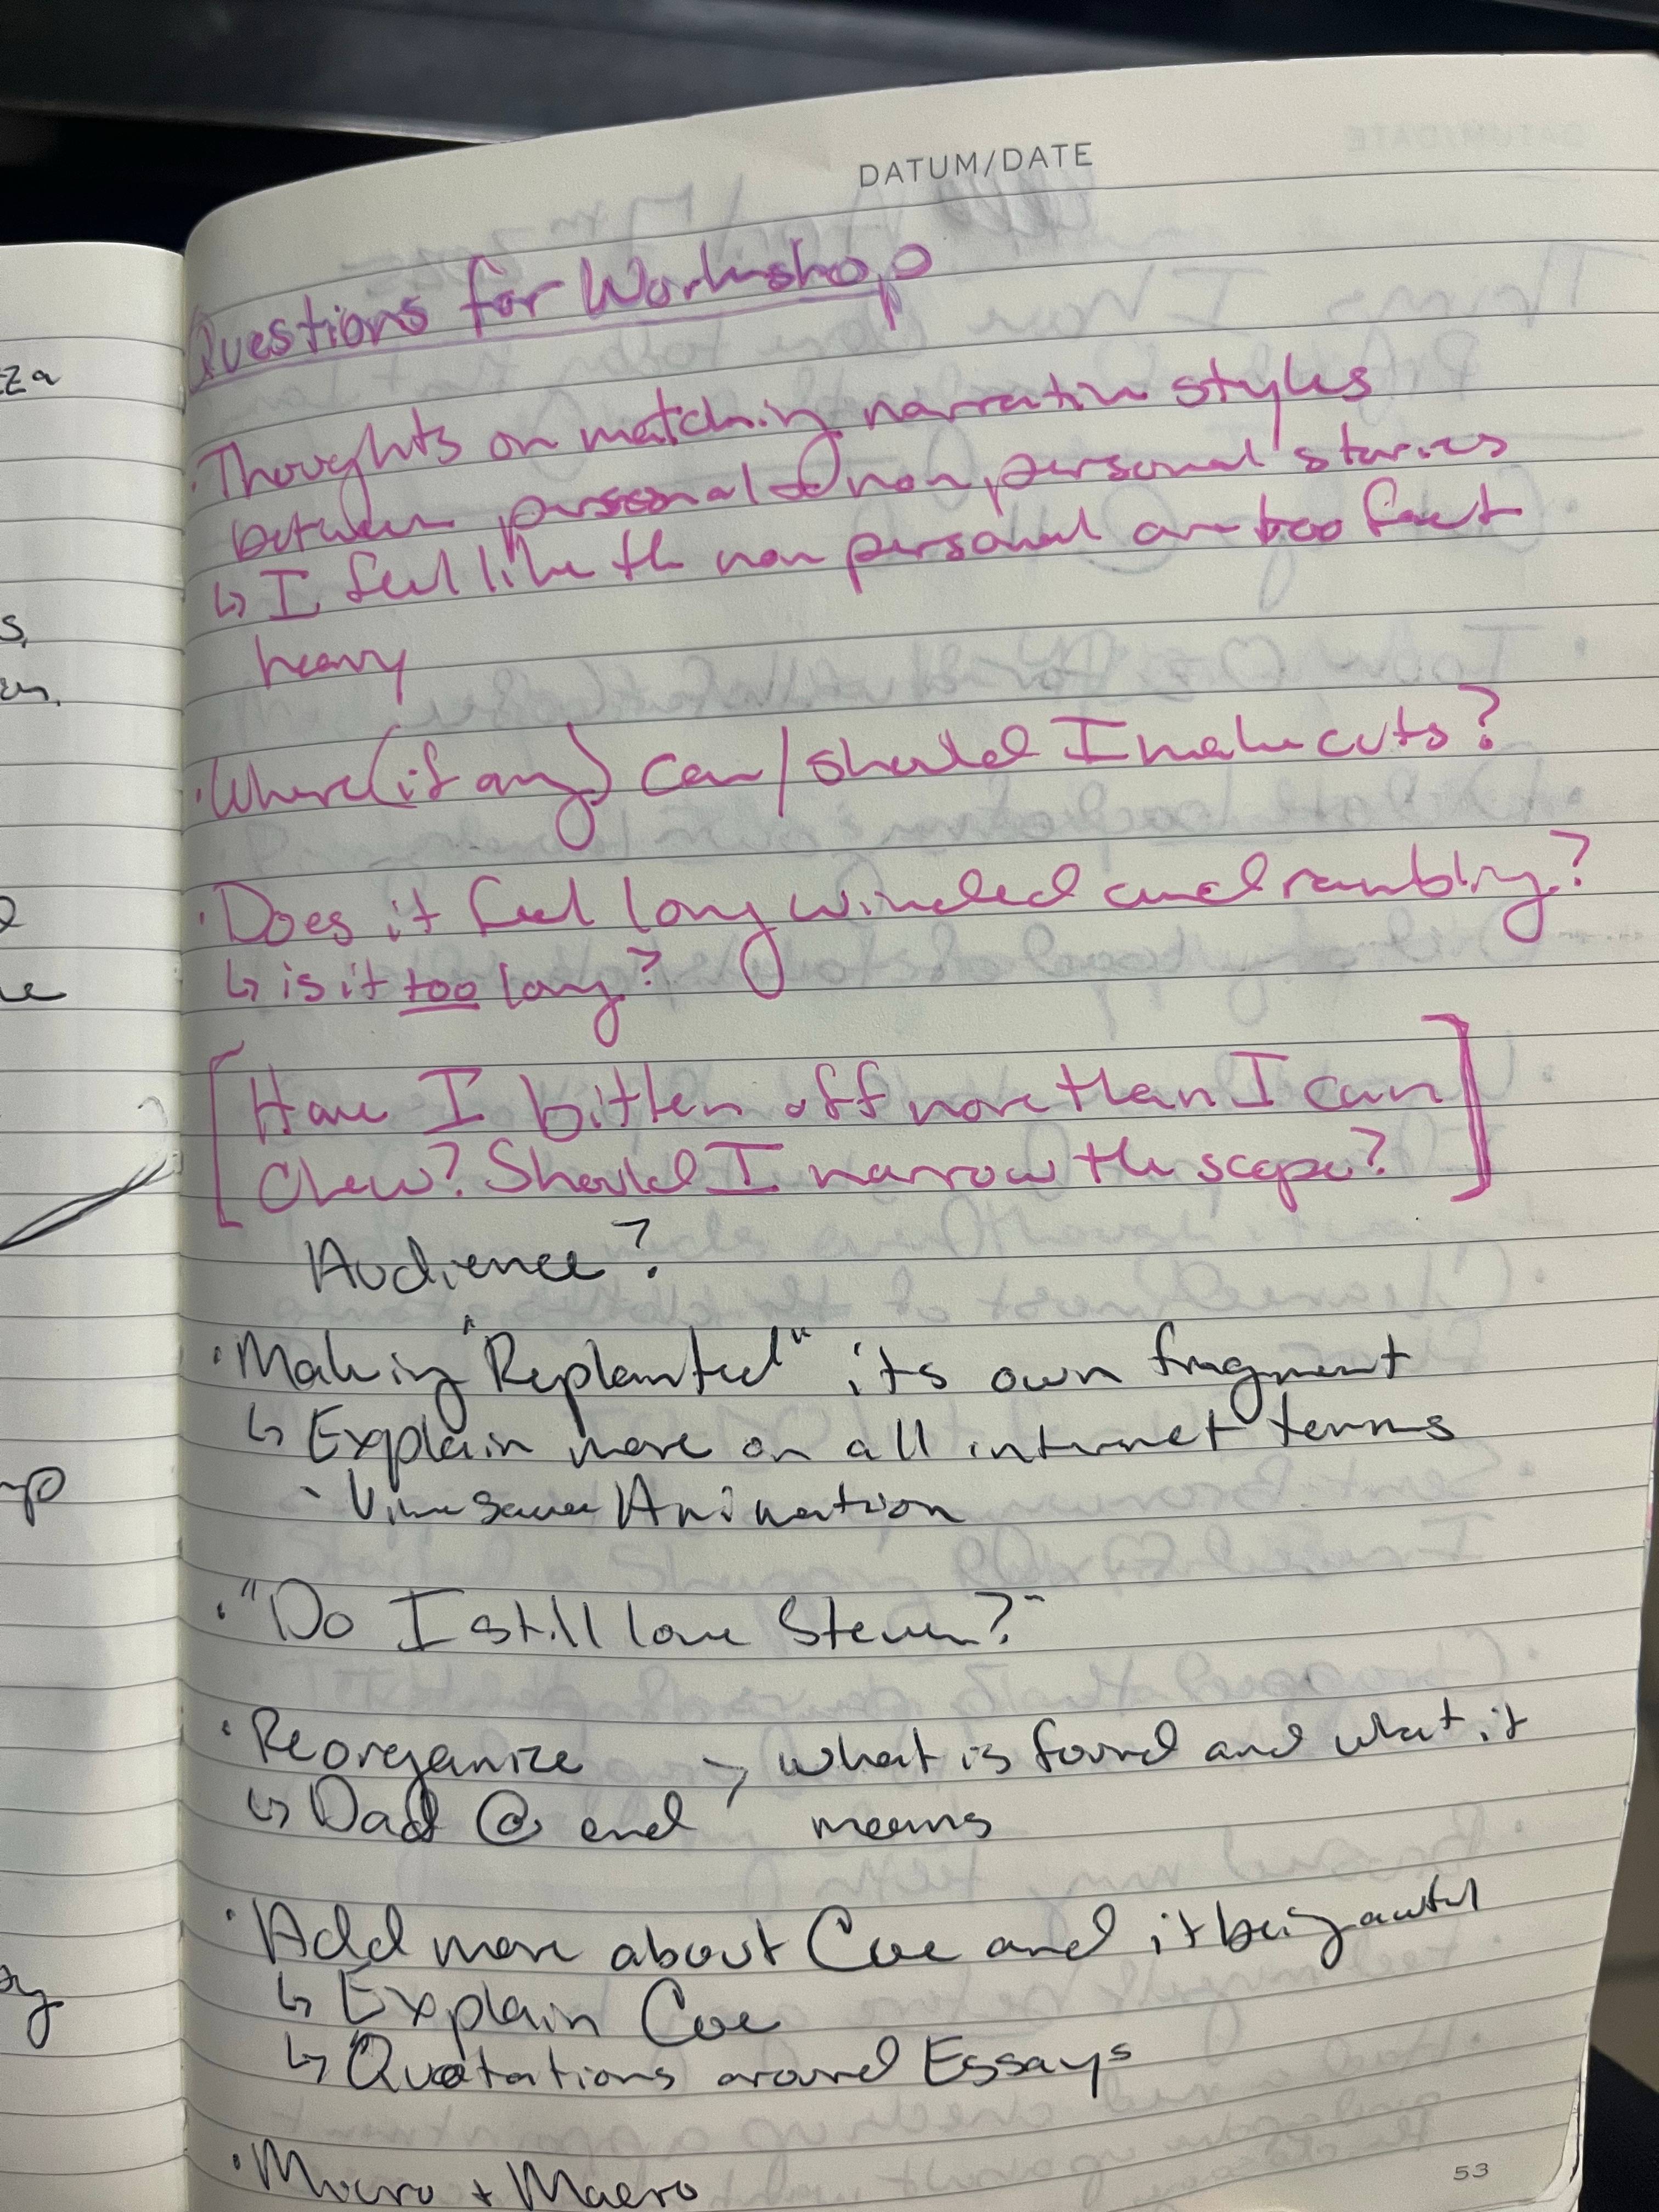 DATUM/DATE
Questions for Workshop
· Thoughts on matching narrative styles
between personal + non personal stories
↳ I feel like the non personal are too fact
heavy
· Where (if any) can/should I make cuts?
· Does it feel long winded and rambling?
↳ is it too long?
[Have I bitten off more than I can
chew? Should I narrow the scope?]
Audience?
· Making "Replanted" its own fragment
↳ Explain more on all internet terms
- Vinesauce Animation
· "Do I still love Steven?"
· Reorganize > what is found and what it
↳ Dad @ end means
· Add more about Coe and it being awful
↳ Explain Coe
↳ Quotations around Essays
· Micro + Macro
53